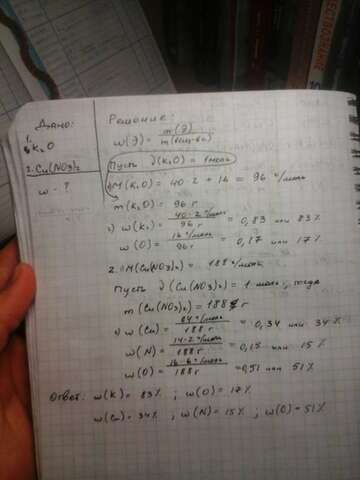 Дано:
1. K₂O
2. Cu(NO₃)₂
ω - ?
Решение:
ω(Э) = m(Э) / m(вещ-ва)
Пусть ν(K₂O) = 1 моль
1) M(K₂O) = 40·2 + 16 = 96 г/моль
m(K₂O) = 96 г
2) ω(K₂) = 40·2 г/моль / 96 г = 0,83 или 83%
ω(O) = 16 г/моль / 96 г = 0,17 или 17%
2. 1) M(Cu(NO₃)₂) = 188 г/моль
Пусть ν(Cu(NO₃)₂) = 1 моль, тогда
m(Cu(NO₃)₂) = 188 г
2) ω(Cu) = 64 г/моль / 188 г = 0,34 или 34%
ω(N) = 14·2 г/моль / 188 г = 0,15 или 15%
ω(O) = 16·6 г/моль / 188 г = 0,51 или 51%
Ответ: ω(K) = 83% ; ω(O) = 17%
ω(Cu) = 34% ; ω(N) = 15% ; ω(O) = 51%